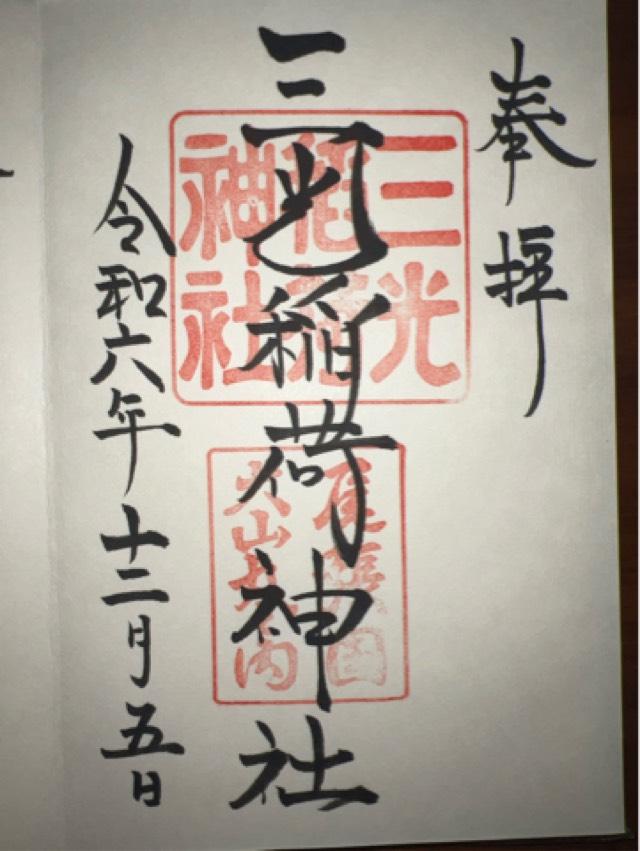 奉拝
三光稲荷神社
三光
稲荷
神社
尾張国
犬山城内
令和六年十二月五日